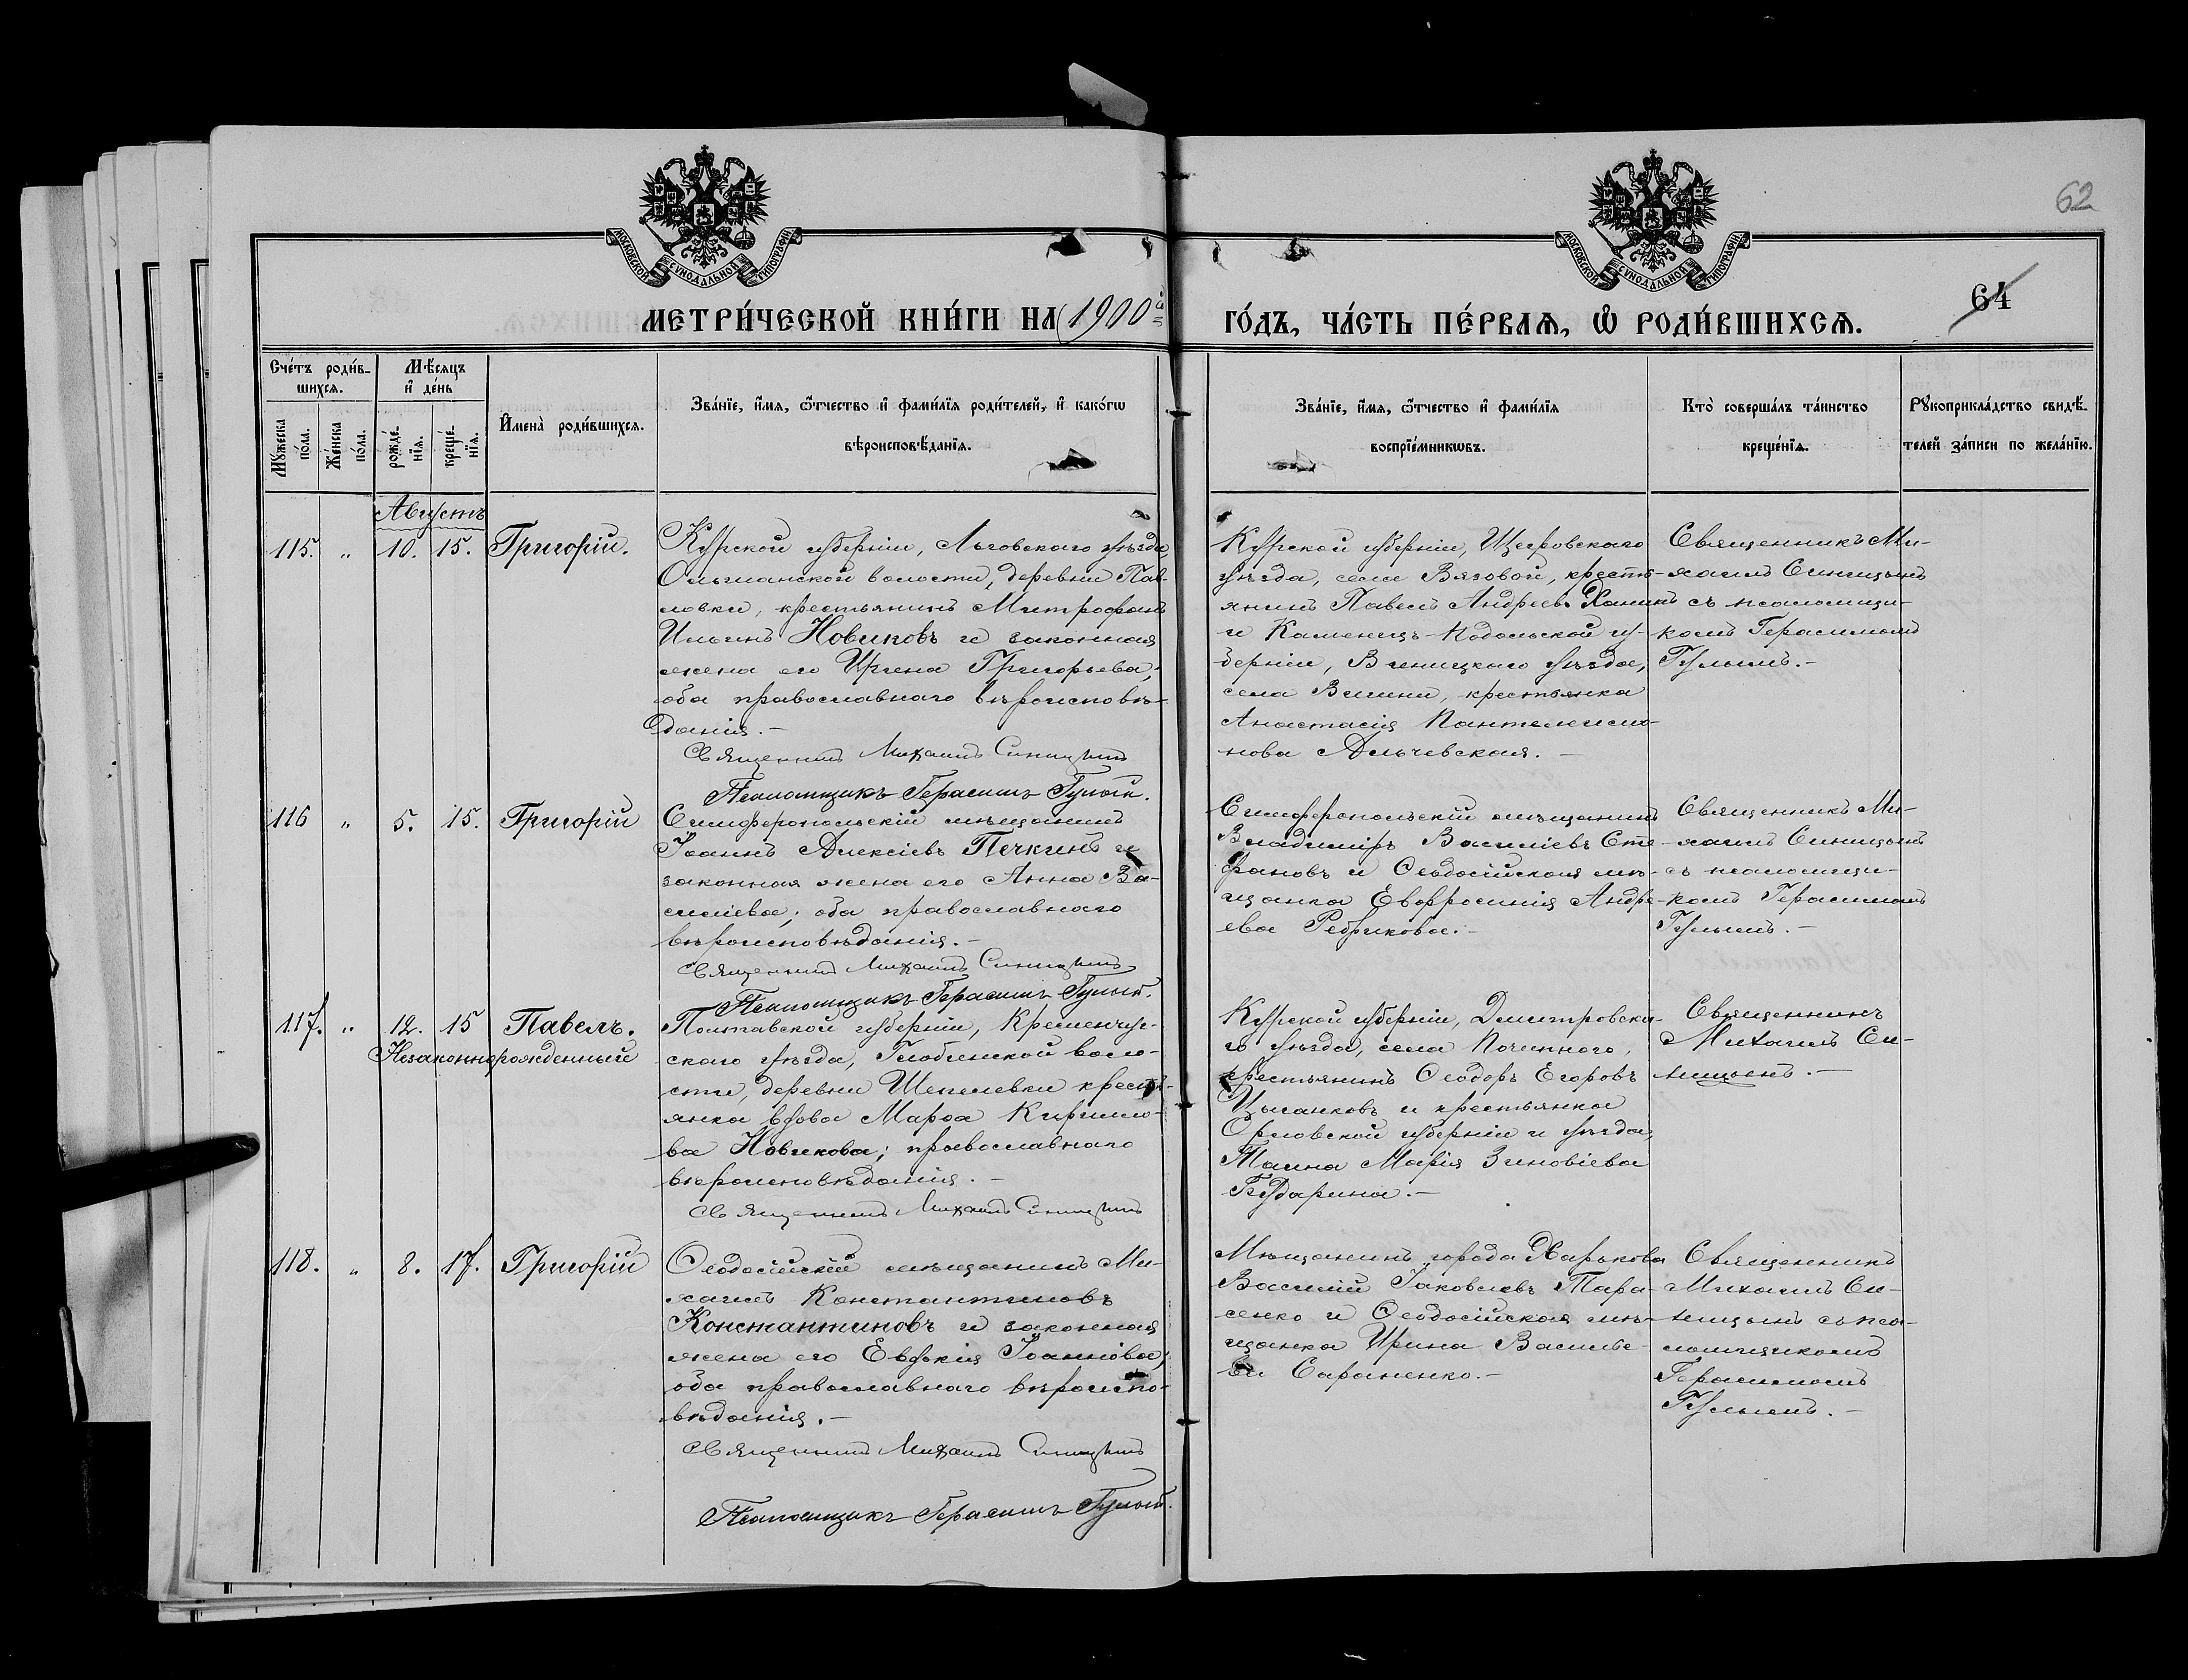 62
МОСКОВСКОЙ СУНОДАЛЬНОЙ ТИПОГРАФІИ
МОСКОВСКОЙ СУНОДАЛЬНОЙ ТИПОГРАФІИ
64
МЕТРИ́ЧЕСКОЙ КНИ́ГИ НА 1900й ГО́ДЪ, ЧА́СТЬ ПЕ́РВАѦ, Ѽ РОДИ́ВШИХСѦ.
Сче́тъ роди́в-
шихсѧ.
Мꙋ́жеска по́ла.
Же́нска по́ла.
Мѣ́сѧцъ и҆ де́нь
рожде́-
нїѧ.
креще́-
нїѧ.
И҆мена̀ роди́вшихсѧ.
Зва́нїе, и҆́мѧ, ѻ҆́тчество и҆ фами́лїѧ роди́телей, и҆ како́гѡ
вѣроисповѣ́данїѧ.
Зва́нїе, и҆́мѧ, ѻ҆́тчество и҆ фами́лїѧ
воспрїе́мникѡвъ.
Кто̀ соверша́лъ та́инство
креще́нїѧ.
Рꙋкоприкла́дство свидѣ́-
телей за́писи по жела́нїю.
Августъ
115. „ 10. 15. Григорій.
Курской губерніи, Льговскаго уѣзда
Ольшанской волости, деревни Пав-
ловки, крестьянинъ Митрофанъ
Ильинъ Новиковъ и законная
жена его Ирина Григорьева;
оба православнаго вѣроисповѣ-
данія.-
Священникъ Михаилъ Синицынъ
Псаломщикъ Герасимъ Гулый.
Курской губерніи, Щигровскаго
уѣзда, села Вязовой, кресть-
янинъ Павелъ Андреевъ Ханинъ
и Каменецъ-Подольской гу-
берніи, Виницкаго уѣзда,
села Вишни, крестьянка
Анастасія Пантелеимо-
нова Альчевская. -
Священникъ Ми-
хаилъ Синицынъ
съ псаломщи-
комъ Герасимомъ
Гулымъ.-
116 „ 5. 15. Григорій
Симферопольскій мѣщанинъ
Іоаннъ Алексіевъ Печкинъ и
законная жена его Анна Ва-
силіева; оба православнаго
вѣроисповѣданія.-
Священникъ Михаилъ Синицынъ
Псаломщикъ Герасимъ Гулый.
Симферопольскій мѣщанинъ
Владиміръ Василіевъ Сте-
фановъ и Ѳеодосійская мѣ-
щанка Евфросинія Андре-
ева Ребрикова.-
Священникъ Ми-
хаилъ Синицынъ
съ псаломщи-
комъ Герасимомъ
Гулымъ. -
117. „ 12. 15 Павелъ.
Незаконнорожденный
Полтавской губерніи, Кременчуг-
скаго уѣзда, Глобинской воло-
сти, деревни Шепелевки кресть-
янка вдова Марѳа Кирилло-
ва Новикова; православнаго
вѣроисповѣданія. -
Священникъ Михаилъ Синицынъ
Курской губерніи, Дмитровска-
го уѣзда, села Починного,
крестьянинъ Ѳеодоръ Егоровъ
Цыганковъ и крестьянка
Орловской губерніи и уѣзда,
Марія Зиновіева
Бударина.-
Священникъ
Михаилъ Си-
ницынъ.-
118. „ 8. 17. Григорій
Ѳеодосійскій мѣщанинъ Ми-
хаилъ Константиновъ
Константиновъ и законная
жена его Евдокія Іоаннова;
оба православнаго вѣроиспо-
вѣданія.-
Священникъ Михаилъ Синицынъ
Псаломщикъ Герасимъ Гулый.
Мѣщанинъ города Харькова
Василій Іаковлевъ Тара-
сенко и Ѳеодосійская мѣ-
щанка Ирина Василье-
ва Сараненко.-
Священникъ
Михаилъ Си-
ницынъ съ пса-
ломщикомъ
Герасимомъ
Гулымъ.-